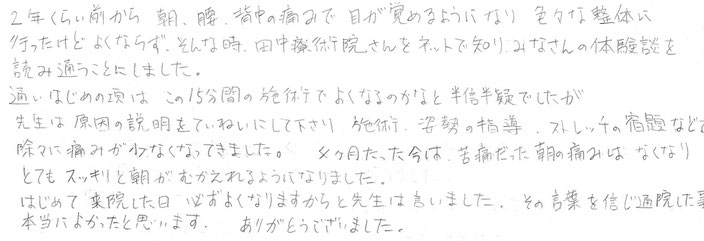 2年くらい前から 朝、腰、背中の痛みで目が覚めるようになり 色々な整体に
行ったけど よくならず、そんな時、田中療術院さんをネットで知り、みなさんの体験談を
読み通うことにしました。
通いはじめの頃は この15分間の施術でよくなるのかなと半信半疑でしたが
先生は原因の説明をていねいにして下さり、施術、姿勢の指導、ストレッチの宿題などで
除々に痛みが少なくなってきました。 4ヶ月たった今は、苦痛だった朝の痛みは なくなり
とても スッキリと朝が むかえれるようになりました。
はじめて 来院した日 必ずよくなりますからと先生は言いました。 その言葉を信じ通院した事
本当によかったと思います。 ありがとうございました。